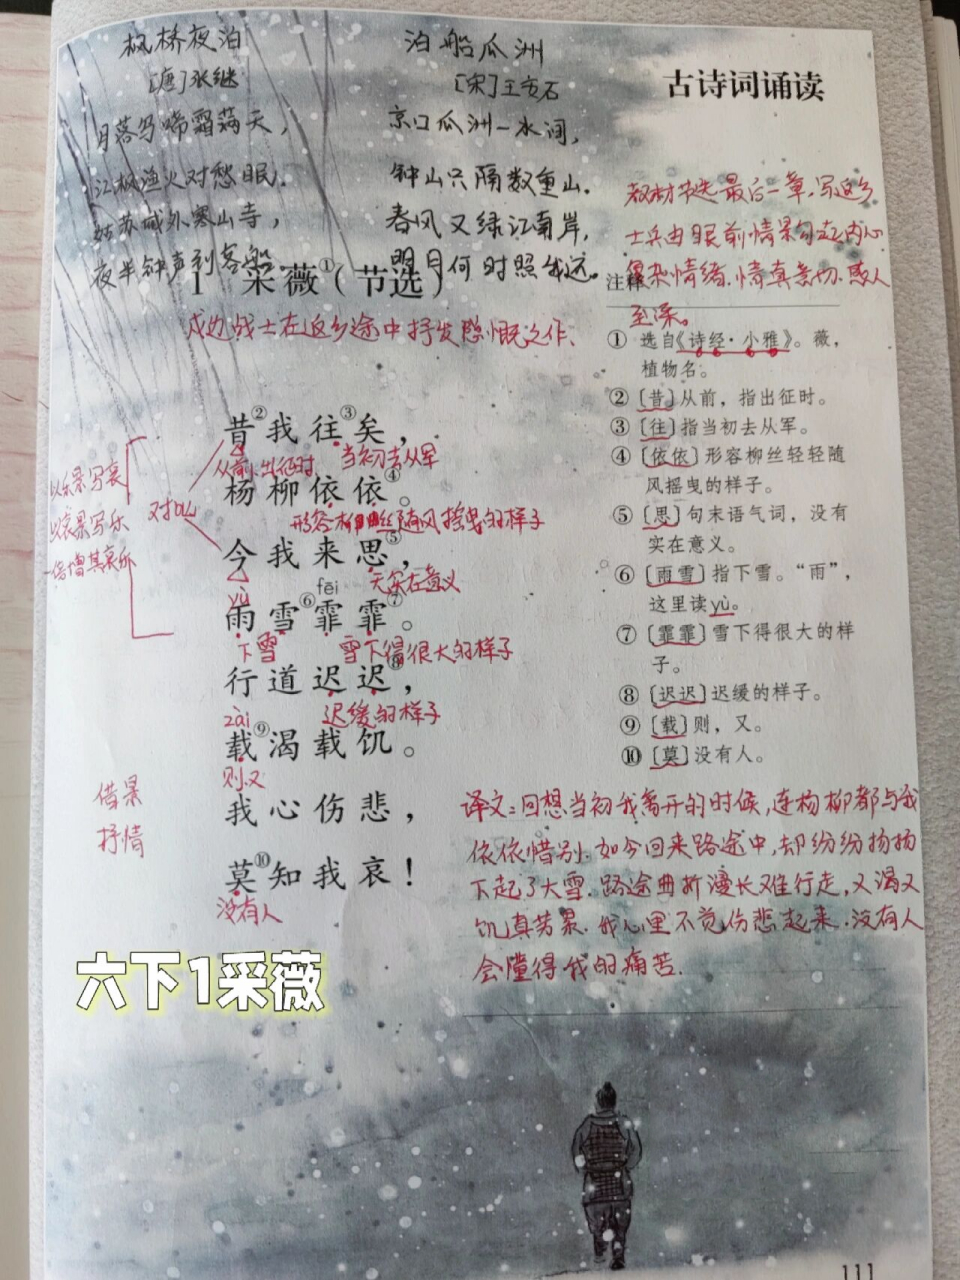 枫桥夜泊
[唐]张继
月落乌啼霜满天，
江枫渔火对愁眠.
姑苏城外寒山寺，
夜半钟声到客船.
泊船瓜洲
[宋]王安石
京口瓜洲一水间，
钟山只隔数重山.
春风又绿江南岸，
明月何时照我还。
古诗词诵读
教材节选最后一章.写返乡
士兵由眼前情景勾起内心
复杂情绪.情真意切.感人
至深。
1 采薇①（节选）
戍边战士在返乡途中抒发感慨之作.
昔②我往③矣，
从前,出征时. 当初去从军
杨柳依依④。
形容柳丝随风摇曳的样子
今我来思⑤，
无实在意义
yù fēi
雨雪⑥霏霏⑦。
下雪 雪下得很大的样子
行道迟迟⑧，
迟缓的样子
zài
载⑨渴载饥。
则.又
我心伤悲，
莫⑩知我哀！
没有人
以乐景写哀
以哀景写乐
一倍增其哀乐
对比
借景
抒情
注释
① 选自《诗经·小雅》。薇，
植物名。
②〔昔〕从前，指出征时。
③〔往〕指当初去从军。
④〔依依〕形容柳丝轻轻随
风摇曳的样子。
⑤〔思〕句末语气词，没有
实在意义。
⑥〔雨雪〕指下雪。“雨”，
这里读yù。
⑦〔霏霏〕雪下得很大的样
子。
⑧〔迟迟〕迟缓的样子。
⑨〔载〕则，又。
⑩〔莫〕没有人。
译文：回想当初我离开的时候，连杨柳都与我
依依惜别.如今回来路途中，却纷纷扬扬
下起了大雪.路途曲折漫长难行走，又渴又
饥真劳累.我心里不觉伤悲起来.没有人
会懂得我的痛苦.
六下1采薇
111